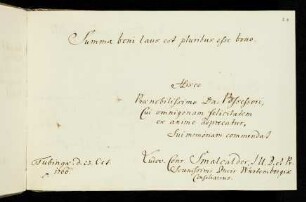 Summa boni laus est pluribus esse bono.
Hisce
Prænobilissimo Dn. Possessori,
Cui omnigenam felicitatem
ex animo adprecatur,
Sui memoriam commendat
Tubingæ. d. 23. Oct.
Ludov. Conr. Smalcalder, J. U. D. et P.
Serenissimi Ducis Würtembergici
Consiliarius.